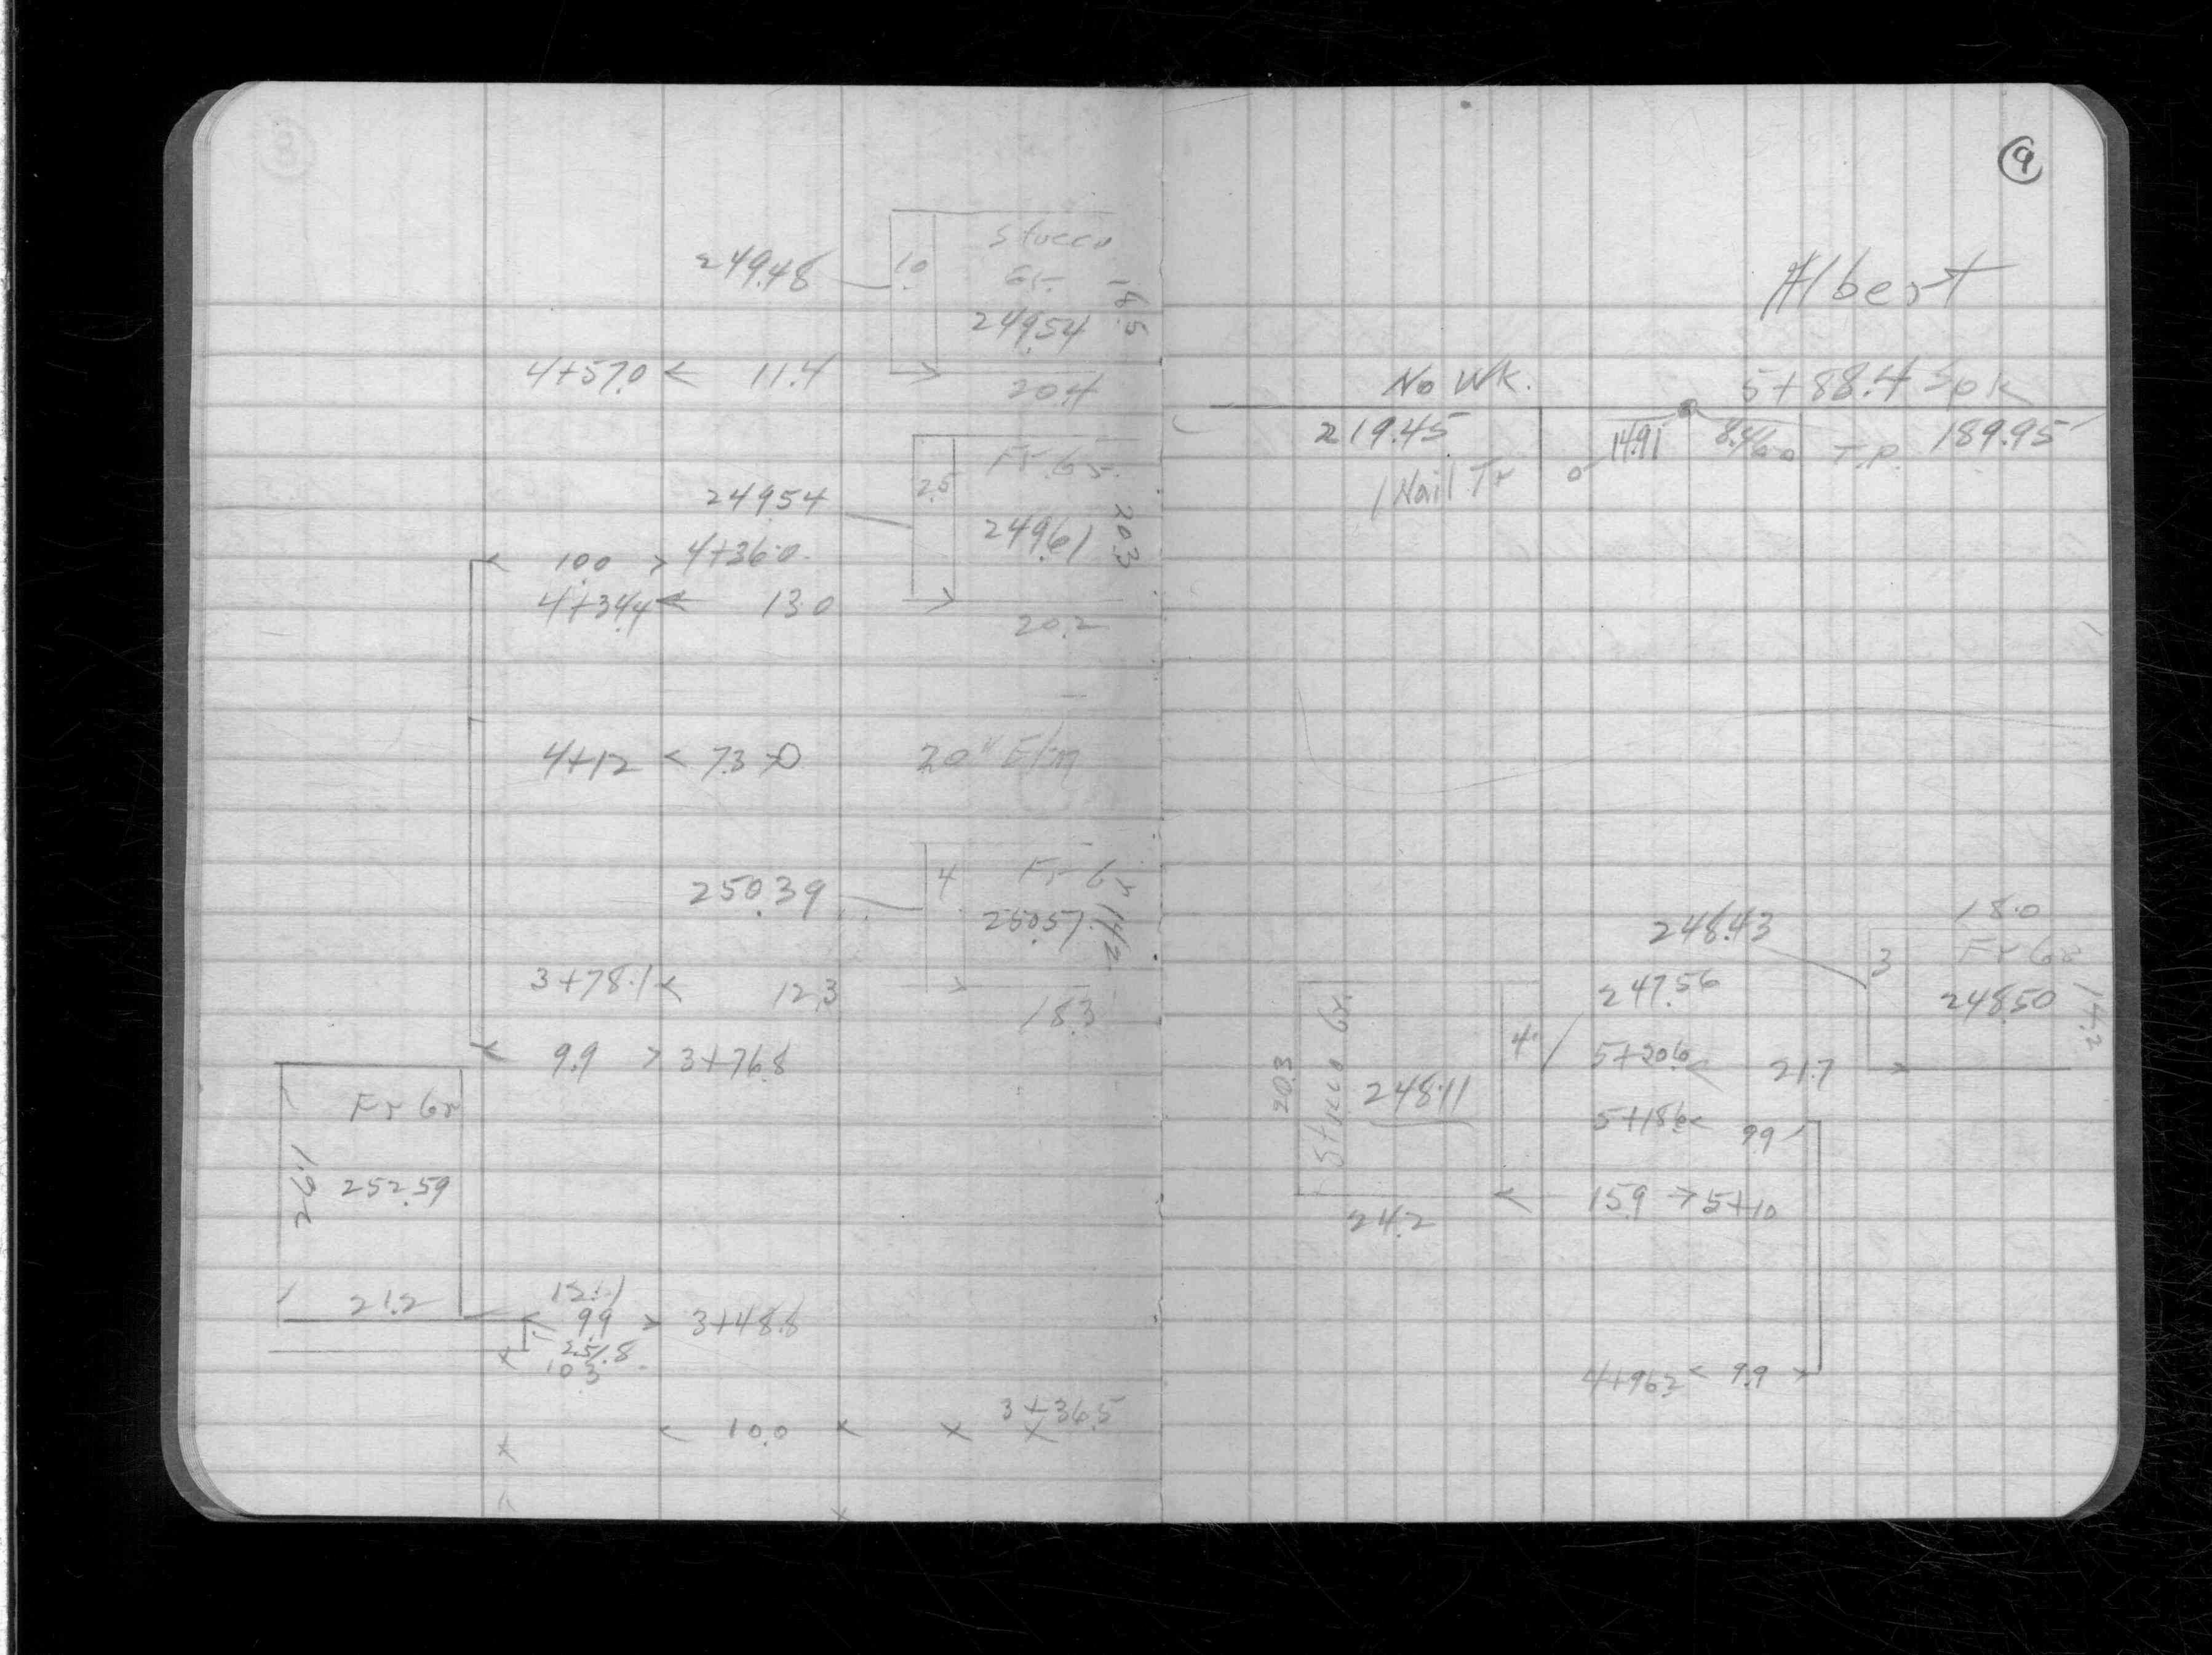 Stucco
249.48
1.0
Gr.
18.5
249.54
4+57.0 < 11.4
20.4
Fr. Gr.
2.5
249.54
20.3
249.61
< 10.0 > 4+36.0
4+34.4 < 13.0
20.2
4+12 < 7.3
20" Elm
Fr Gr
4
250.39
14.2
250.57
3+78.1 < 12.3
18.3
< 9.9 > 3+76.8
Fr Gr
252.59
21.2
12.1
< 9.9 > 3+48.8
251.8
10.3
3+36.5
< 10.0 < x x
9
Albert
No Wk.
5+88.4 Spk
219.45
149.1
T.P. 189.95
Nail Tr
18.0
248.43
Fr Gr
3
247.56
248.50
14.2
Stucco Gr.
4
5+20.6 < 21.7
20.3
248.11
5+18.6 < 9.9
< 15.9 > 5+10
24.2
4+96.2 < 9.9 >